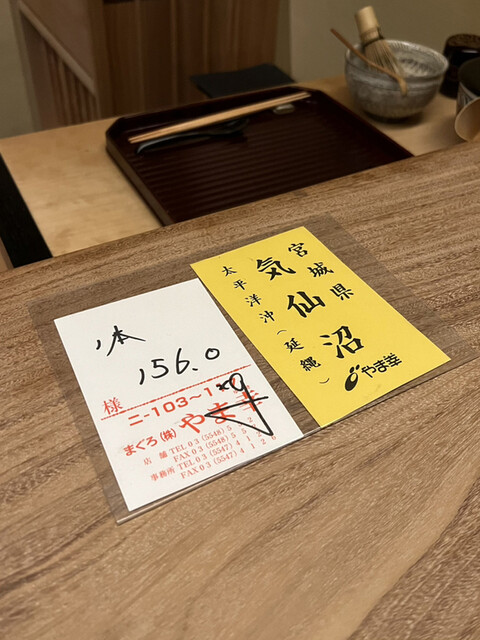 1本
156.0
様
ニ-103〜1
まぐろ(株) やま幸
店舗 TEL 03 (5548) 5
FAX 03 (5548) 5
事務所 TEL 03 (5547) 4 1 2
FAX 03 (5547) 4 1 2 6
宮城県
気仙沼
太平洋沖(延縄)
やま幸